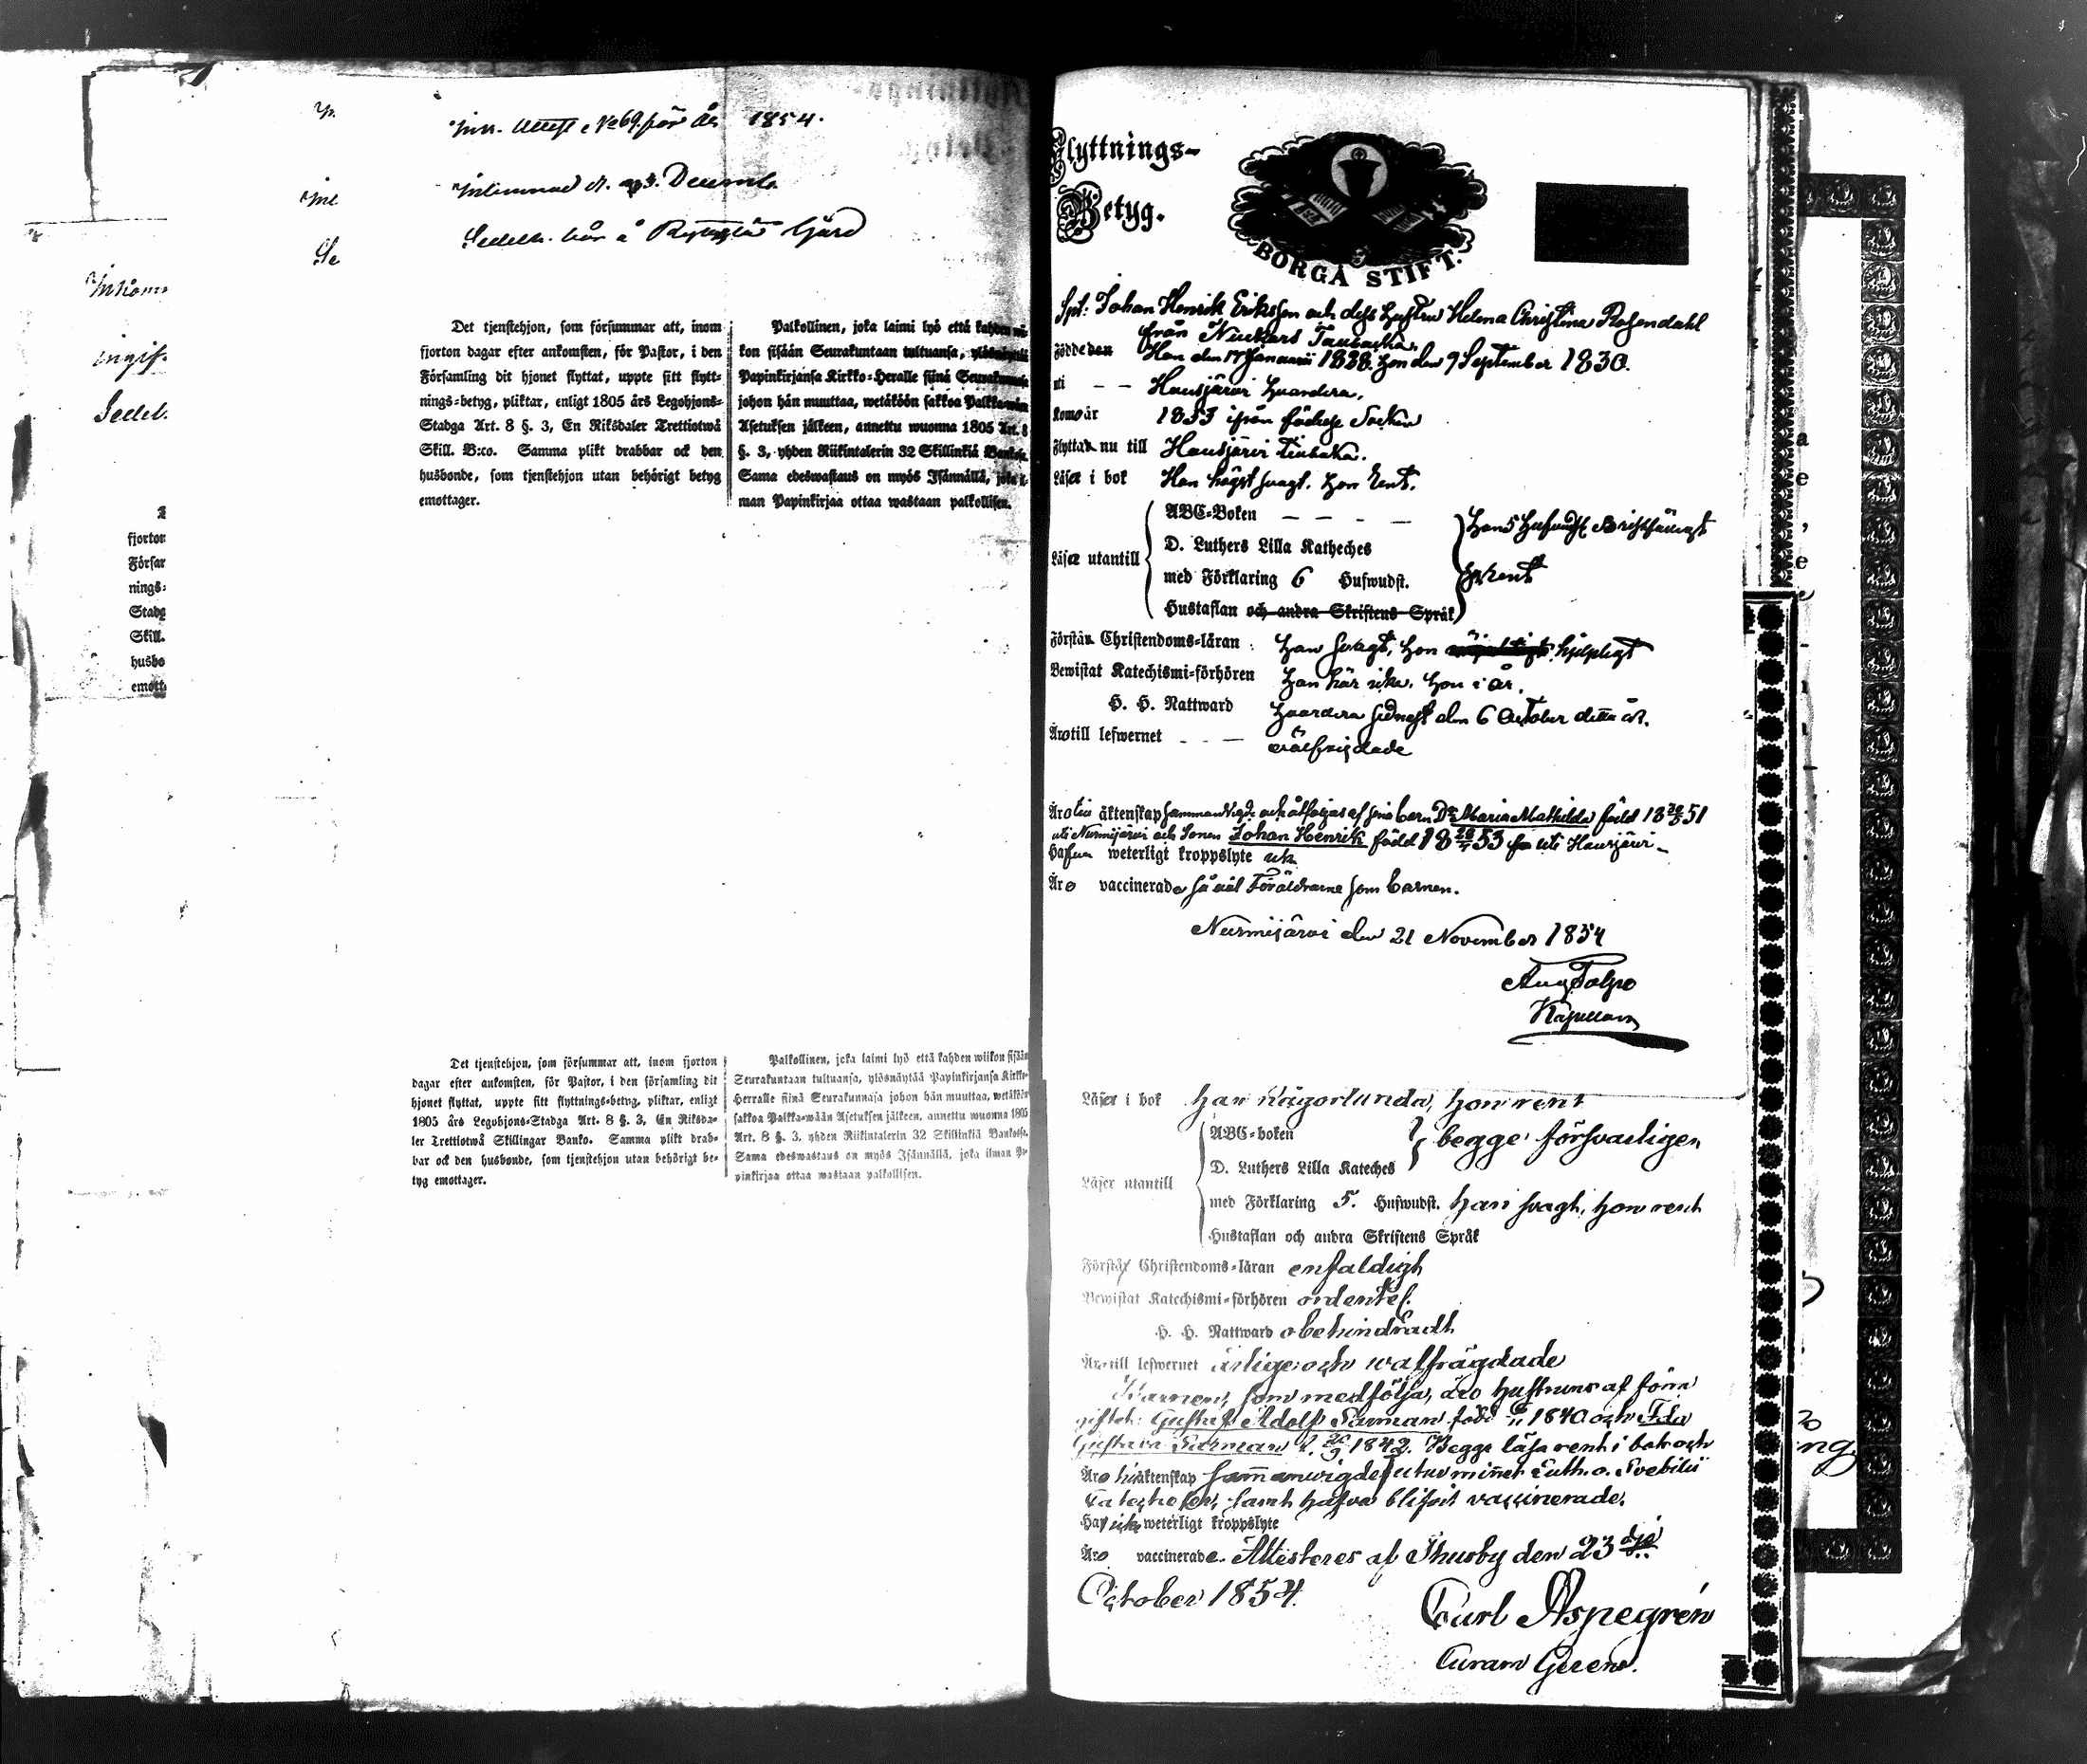 Inn. Attest No 69. för År 1854.
Inlemnad d. 3. Decemb.
Sedeln bär å Gård
Det tjenstehjon, som försummar att, inom
fjorton dagar efter ankomsten, för Pastor, i den
Församling dit hjonet flyttat, uppte sitt flytt-
nings-betyg, pliktar, enligt 1805 års Legohjons-
Stadga Art. 8 §. 3, En Riksdaler Trettiotwå
Skill. B:co. Samma plikt drabbar ock den
husbonde, som tjenstehjon utan behörigt betyg
emottager.
Palkollinen, joka laimi lyö että kahden wii-
kon sisään Seurakuntaan tultuansa, ylösnäyttää
Papinkirjansa Kirkko-Heralle siinä Seurakunnasa
johon hän muuttaa, wetäköön sakkoa Palkkawään
Asetuksen jälkeen, annettu wuonna 1805 Art. 8
§. 3, yhden Riikintalerin 32 Skillinkiä Bankosa.
Sama edeswastaus on myös Isännällä, joka il-
man Papinkirjaa ottaa wastaan palkollisen.
fjorton
Försam
nings-
Stadg
Skill.
husbo
emott
Det tjenstehjon, som försummar att, inom fjorton
dagar efter ankomsten, för Pastor, i den församling dit
hjonet flyttat, uppte sitt flyttnings-betyg, pliktar, enligt
1805 års Legohjons-Stadga Art. 8 §. 3, En Riksda-
ler Trettiotwå Skillingar Banko. Samma plikt drab-
bar ock den husbonde, som tjenstehjon utan behörigt be-
tyg emottager.
Palkollinen, joka laimi lyö että kahden wiikon sisään
Seurakuntaan tultuansa, ylösnäytää Papinkirjansa Kirkko-
Herralle siinä Seurakunnasa johon hän muuttaa, wetäköön
sakkoa Palkka-wään Asetuksen jälkeen, annettu wuonna 1805
Art. 8 §. 3, yhden Riikintalerin 32 Skillinkiä Bankosa.
Sama edeswastaus on myös Isännällä, joka ilman Pa-
pinkirjaa ottaa wastaan palkollisen.
Flyttnings-
Betyg.
BORGÅ STIFT.
Johan Henrik Eriksson och dess hustru Helena Christina Rosendahl
från Nuckars
Födde den Han den 17 Januarii 1828. hon den 9 September 1830.
uti Hausjärvi hvardera.
Komo år 1853 ifrån Socken
Flytta nu till Hausjärvi tillbaka.
Läser i bok Han högst svagt. hon rent.
Läser utantill
ABC-Boken
D. Luthers Lilla Katheches
med Förklaring 6 Hufwudst.
Hustaflan och andra Skriftens Språk
hon rent
Förstån Christendoms-läran: han svagt, hon hjelpligt
Bewistat Katechismi-förhören han här icke. hon i år.
H. H. Nattward hvardera sednast den 6 October detta år.
Äro till lefwernet välfrejdade
Äro i äktenskap sammanvigde och åtföljas af sina barn Dr Maria Mathilda född 1851
uti Nurmijärvi och Sonen Johan Henrik född 1853 uti Hausjärvi
Hafva weterligt kroppslyte icke
Äro vaccinerade så väl Föräldrarne som barnen.
Nurmijärvi den 21 November 1854
Aug Talpo
Kapellan
Läser i bok han någorlunda, hon rent
Läser utantill
ABC-boken
D. Luthers Lilla Kateches
begge försvarligen
med Förklaring 5. Hufwudst. han svagt, hon rent
Hustaflan och andra Skriftens Språk
Förstår Christendoms-läran enfaldigt
Bewistat Katechismi-förhören ordentel.
H. H. Nattward obehindradt
Äro till lefwernet ärlige och walfrägdade
Barnen, som medfölja, äro hustruns af förra
giftet: Gustaf Adolf Sarman född 1840 och Ida
Gustava Sarman f. 1842. Begge läsa rent i bok och
Äro i äktenskap sammanwigde utur minnet Luth. o. Svebilii
Catecheser, samt hafva blifvit vaccinerade.
Haf icke weterligt kroppslyte
Äro vaccinerade. Attesteres af Thusby den 23 dje
October 1854.
Carl Aspegrén
Curam Gerens.